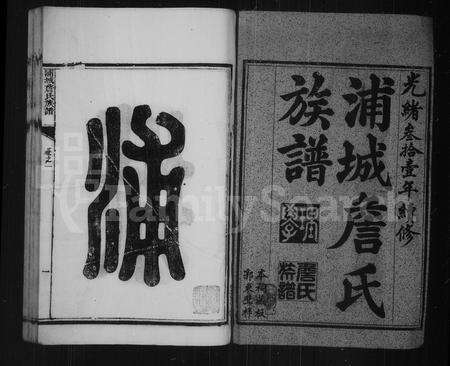 光緒叁拾壹年續修
浦城詹氏
族譜
詹氏
族譜
本祠藏板
浦
浦城詹氏族譜
卷之一
FamilySearch